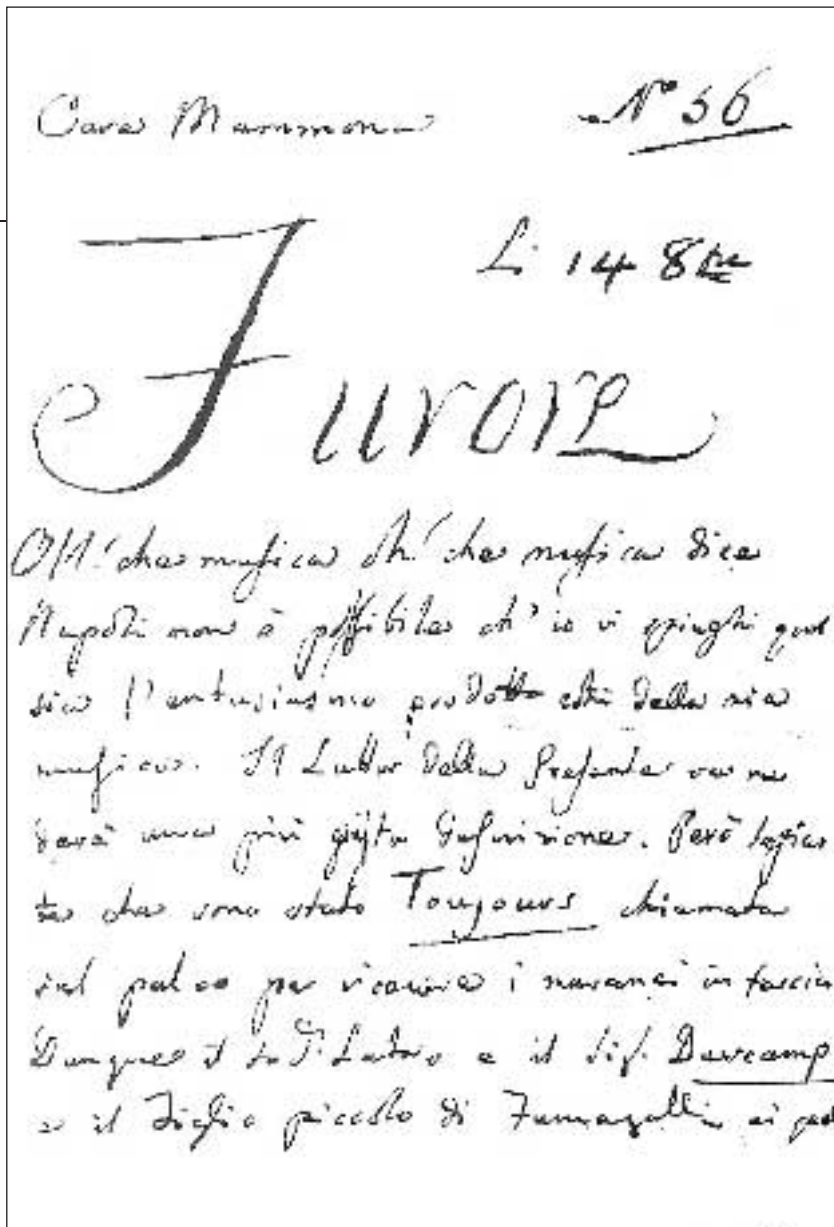 Cara Mamma
N° 36
Li 14 8bre
Furore
Oh! che musica oh! che musica dice
Napoli non è possibile ch'io vi spieghi qual
sia l'entusiasmo prodotto della mia
musica. Il della presente ve ne
darà una più giusta definizione. Però
che sono stato Toujours chiamato
sul palco per ricevere i naranci in faccia
Dunque il e il Sig. Dercamp
e il Figlio piccolo di Fumagalli